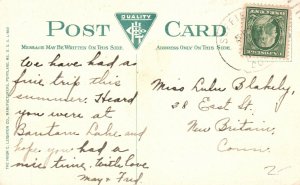 POST CARD
QUALITY
MESSAGE MAY BE WRITTEN ON THIS SIDE.
ADDRESS ONLY ON THIS SIDE.
We have had a
fine trip this
summer. Heard
you were at
Bantam Lake and
hope you had a
nice time. With love
May & Fred.
Miss Lulu Blakely,
28 East St.
New Britain,
Conn.